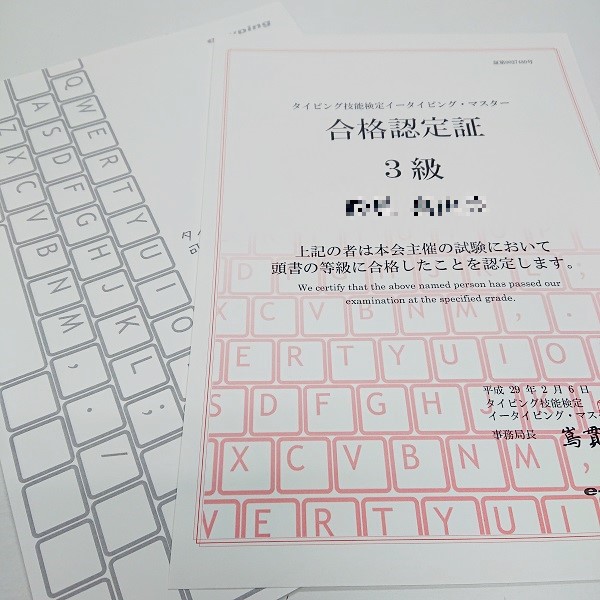 タイピング技能検定イータイピング・マスター
合格認定証
3級
上記の者は本会主催の試験において
頭書の等級に合格したことを認定します。
We certify that the above named person has passed our
examination at the specified grade.
平成 29 年 2 月 6 日
タイピング技能検定
イータイピング・マス
事務局長
X C V B N M , .
E R T Y U I O
S D F G H J
X C V B N M ,
V E R T Y U I O
Q W E R T Y U I O
A S D F G H J K L ;
Z X C V B N M , . /